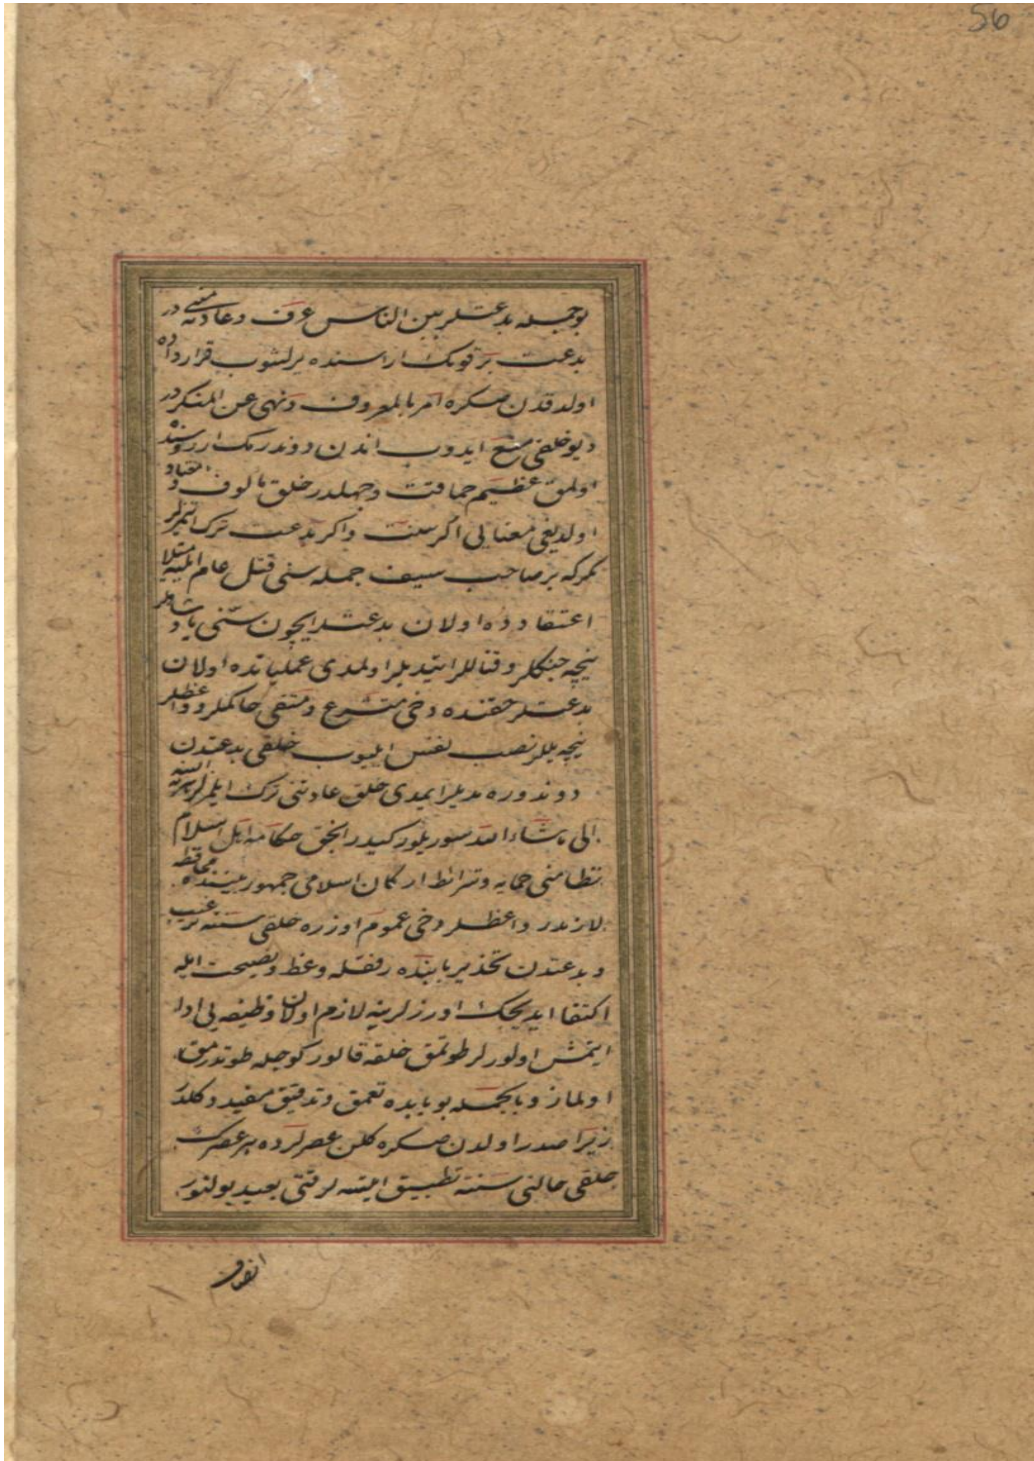 56
بو جمله بدعتلر بين الناس عرف و عادته مبنى در
بدعت بر قومك اراسنده يرلشوب قرارداده
اولدقدن صكره امر بالمعروف و نهى عن المنكر در
ديو خلقى منع ايدوب اندن دوندرمك ارزوسنده
اولمق عظيم حماقت و جهلدر خلق مألوف و معتاد
اولديغى معنايى اگر سنت و اكر بدعت ترك ايتمزلر
مكركه بر صاحب سيف جمله سنى قتل عام ايليه مثلا
اعتقادده اولان بدعتلر ايچون سنّى پادشاهلر
نيچه جنكلر و قتاللر ايتديلر اولمدى عملياتده اولان
بدعتلر حقنده دخى متشرع و متقى حاكملر و واعظلر
نيچه ييللر نصب نفس ايليوب خلقى بدعتدن
دوندوره مديلر ايمدى خلق عادتنى ترك ايلمز هر نه ايسه
الى ماشاء الله سوريلور كيدر انجق حكامه اهل اسلام
نظامنى حمايه و شرائط اركان اسلامى جمهور بيننده محافظه
لازمدر واعظلر دخى عموم اوزره خلقى سنته ترغيب
و بدعتدن تحذير بابنده رفقله وعظ و نصيحت ايله
اكتفا ايديجك اوزرلرينه لازم اولان وظيفه يى ادا
ايتمش اولورلر طوتمق خلقه قالور كوجله طوتدرمق
اولماز و بالجمله بو بابده تعمق و تدقيق مفيد دكلدر
زيرا صدر اولدن صكره كلن عصرلرده هر عصرك
خلقى حالنى سنته تطبيق ايتسه لر قتى بعيد بولنور
انصاف